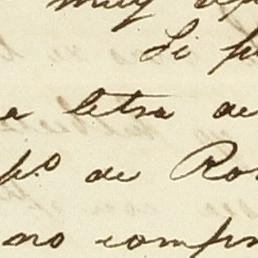 muy
Si p
a letra de
p.º de Ro
no comp